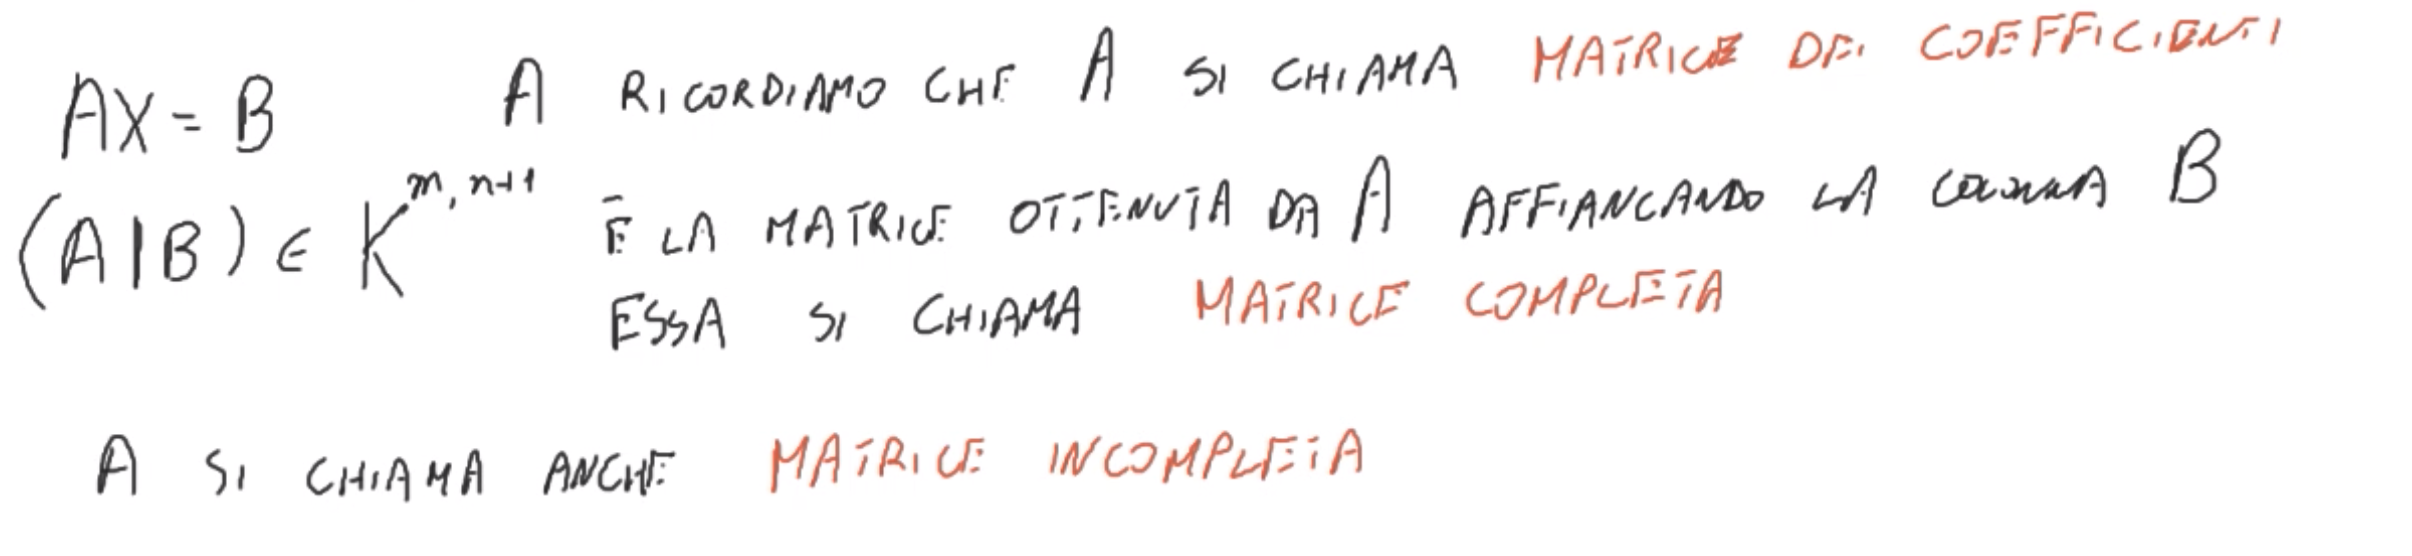 AX = B A RICORDIAMO CHE A SI CHIAMA MATRICE DEI COEFFICIENTI
(A|B) ∈ K^{m, n+1} È LA MATRICE OTTENUTA DA A AFFIANCANDO LA COLONNA B
ESSA SI CHIAMA MATRICE COMPLETA
A SI CHIAMA ANCHE MATRICE INCOMPLETA